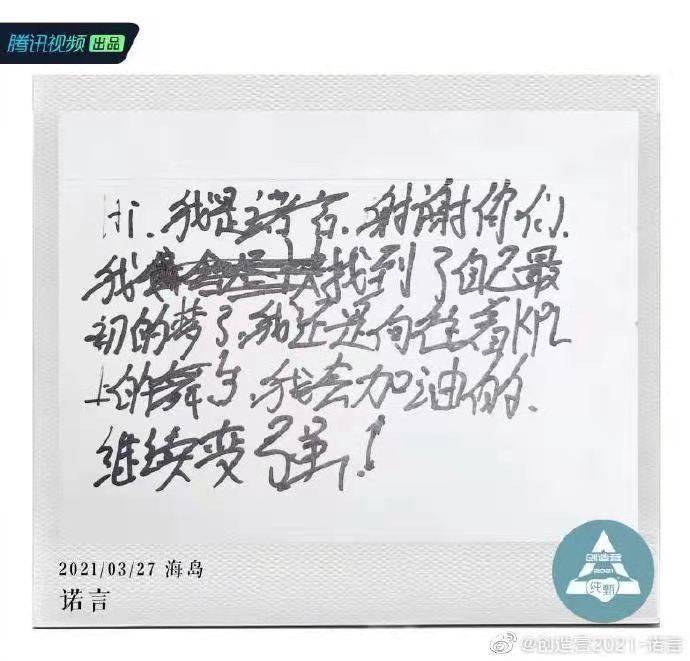 腾讯视频 出品
Hi、我是诺言、谢谢你们、
我找到了自己最
初的梦了,我还是向往着KPL
上的舞台、我会加油的、
继续变强!
2021/03/27 海岛
诺言
创造营
2021
纯甄
@创造营2021-诺言